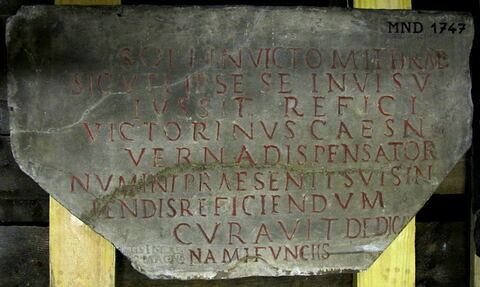 MND 1747
SOLI INVICTO MITHRAE
SICUT IPSE SE IN VISU
IUSSIT REFICI
VICTORINUS CAES N
VERNA DISPENSATOR
NUMINI PRAESENTI SUIS IN
PENDIS REFICIENDUM
CURAVIT DEDIC
NAMA CUNCTIS